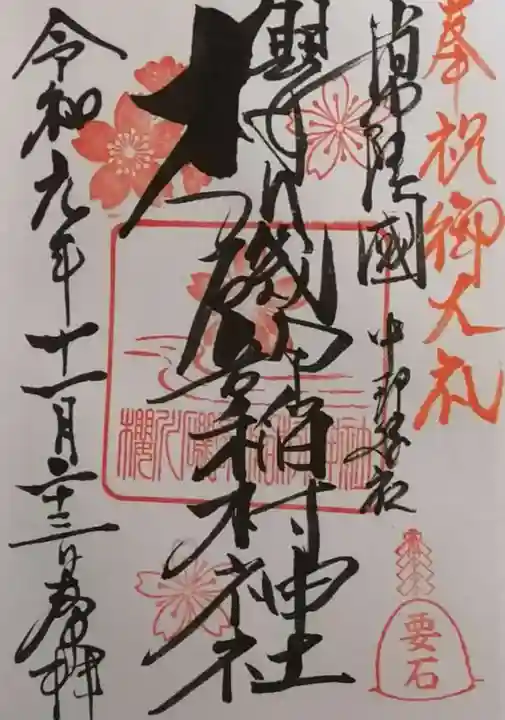 奉祝御大礼
常陸國
櫻川磯部稲村神社
令和元年十一月二十三日奉拝
櫻川磯部稲村神社
要石